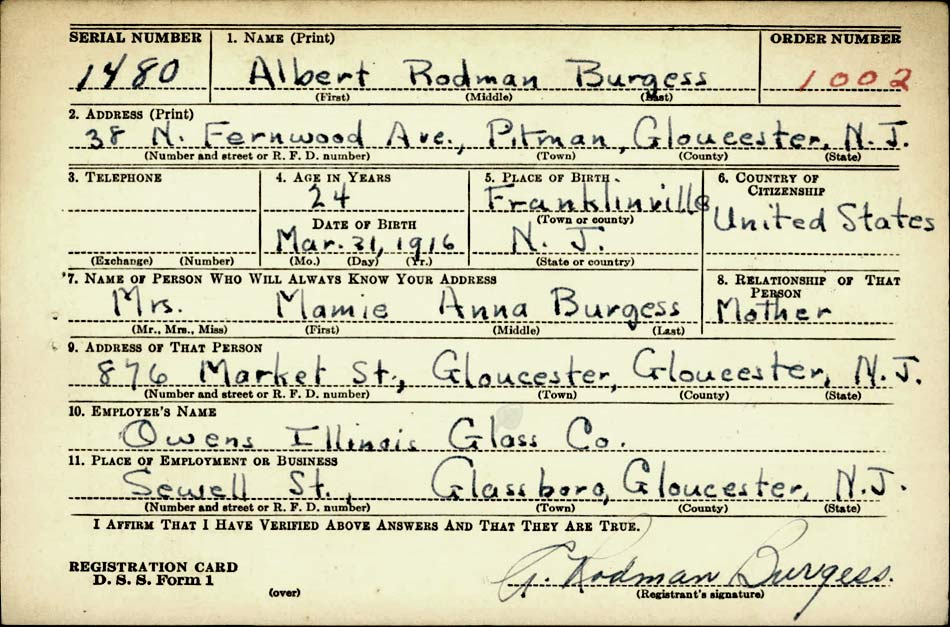 SERIAL NUMBER 1. NAME (Print) ORDER NUMBER
1480 Albert Rodman Burgess 1002
(First) (Middle) (Last)
2. ADDRESS (Print)
38 N. Fernwood Ave., Pitman, Gloucester, N.J.
(Number and street or R. F. D. number) (Town) (County) (State)
3. TELEPHONE 4. AGE IN YEARS 5. PLACE OF BIRTH 6. COUNTRY OF CITIZENSHIP
24 Franklinville United States
DATE OF BIRTH (Town or county)
Mar. 31, 1916 N. J.
(Exchange) (Number) (Mo.) (Day) (Yr.) (State or country)
7. NAME OF PERSON WHO WILL ALWAYS KNOW YOUR ADDRESS 8. RELATIONSHIP OF THAT PERSON
Mrs. Mamie Anna Burgess Mother
(Mr., Mrs., Miss) (First) (Middle) (Last)
9. ADDRESS OF THAT PERSON
876 Market St., Gloucester, Gloucester, N.J.
(Number and street or R. F. D. number) (Town) (County) (State)
10. EMPLOYER'S NAME
Owens Illinois Glass Co.
11. PLACE OF EMPLOYMENT OR BUSINESS
Sewell St., Glassboro, Gloucester, N.J.
(Number and street or R. F. D. number) (Town) (County) (State)
I AFFIRM THAT I HAVE VERIFIED ABOVE ANSWERS AND THAT THEY ARE TRUE.
REGISTRATION CARD
D. S. S. Form 1 A. Rodman Burgess.
(over) (Registrant's signature)